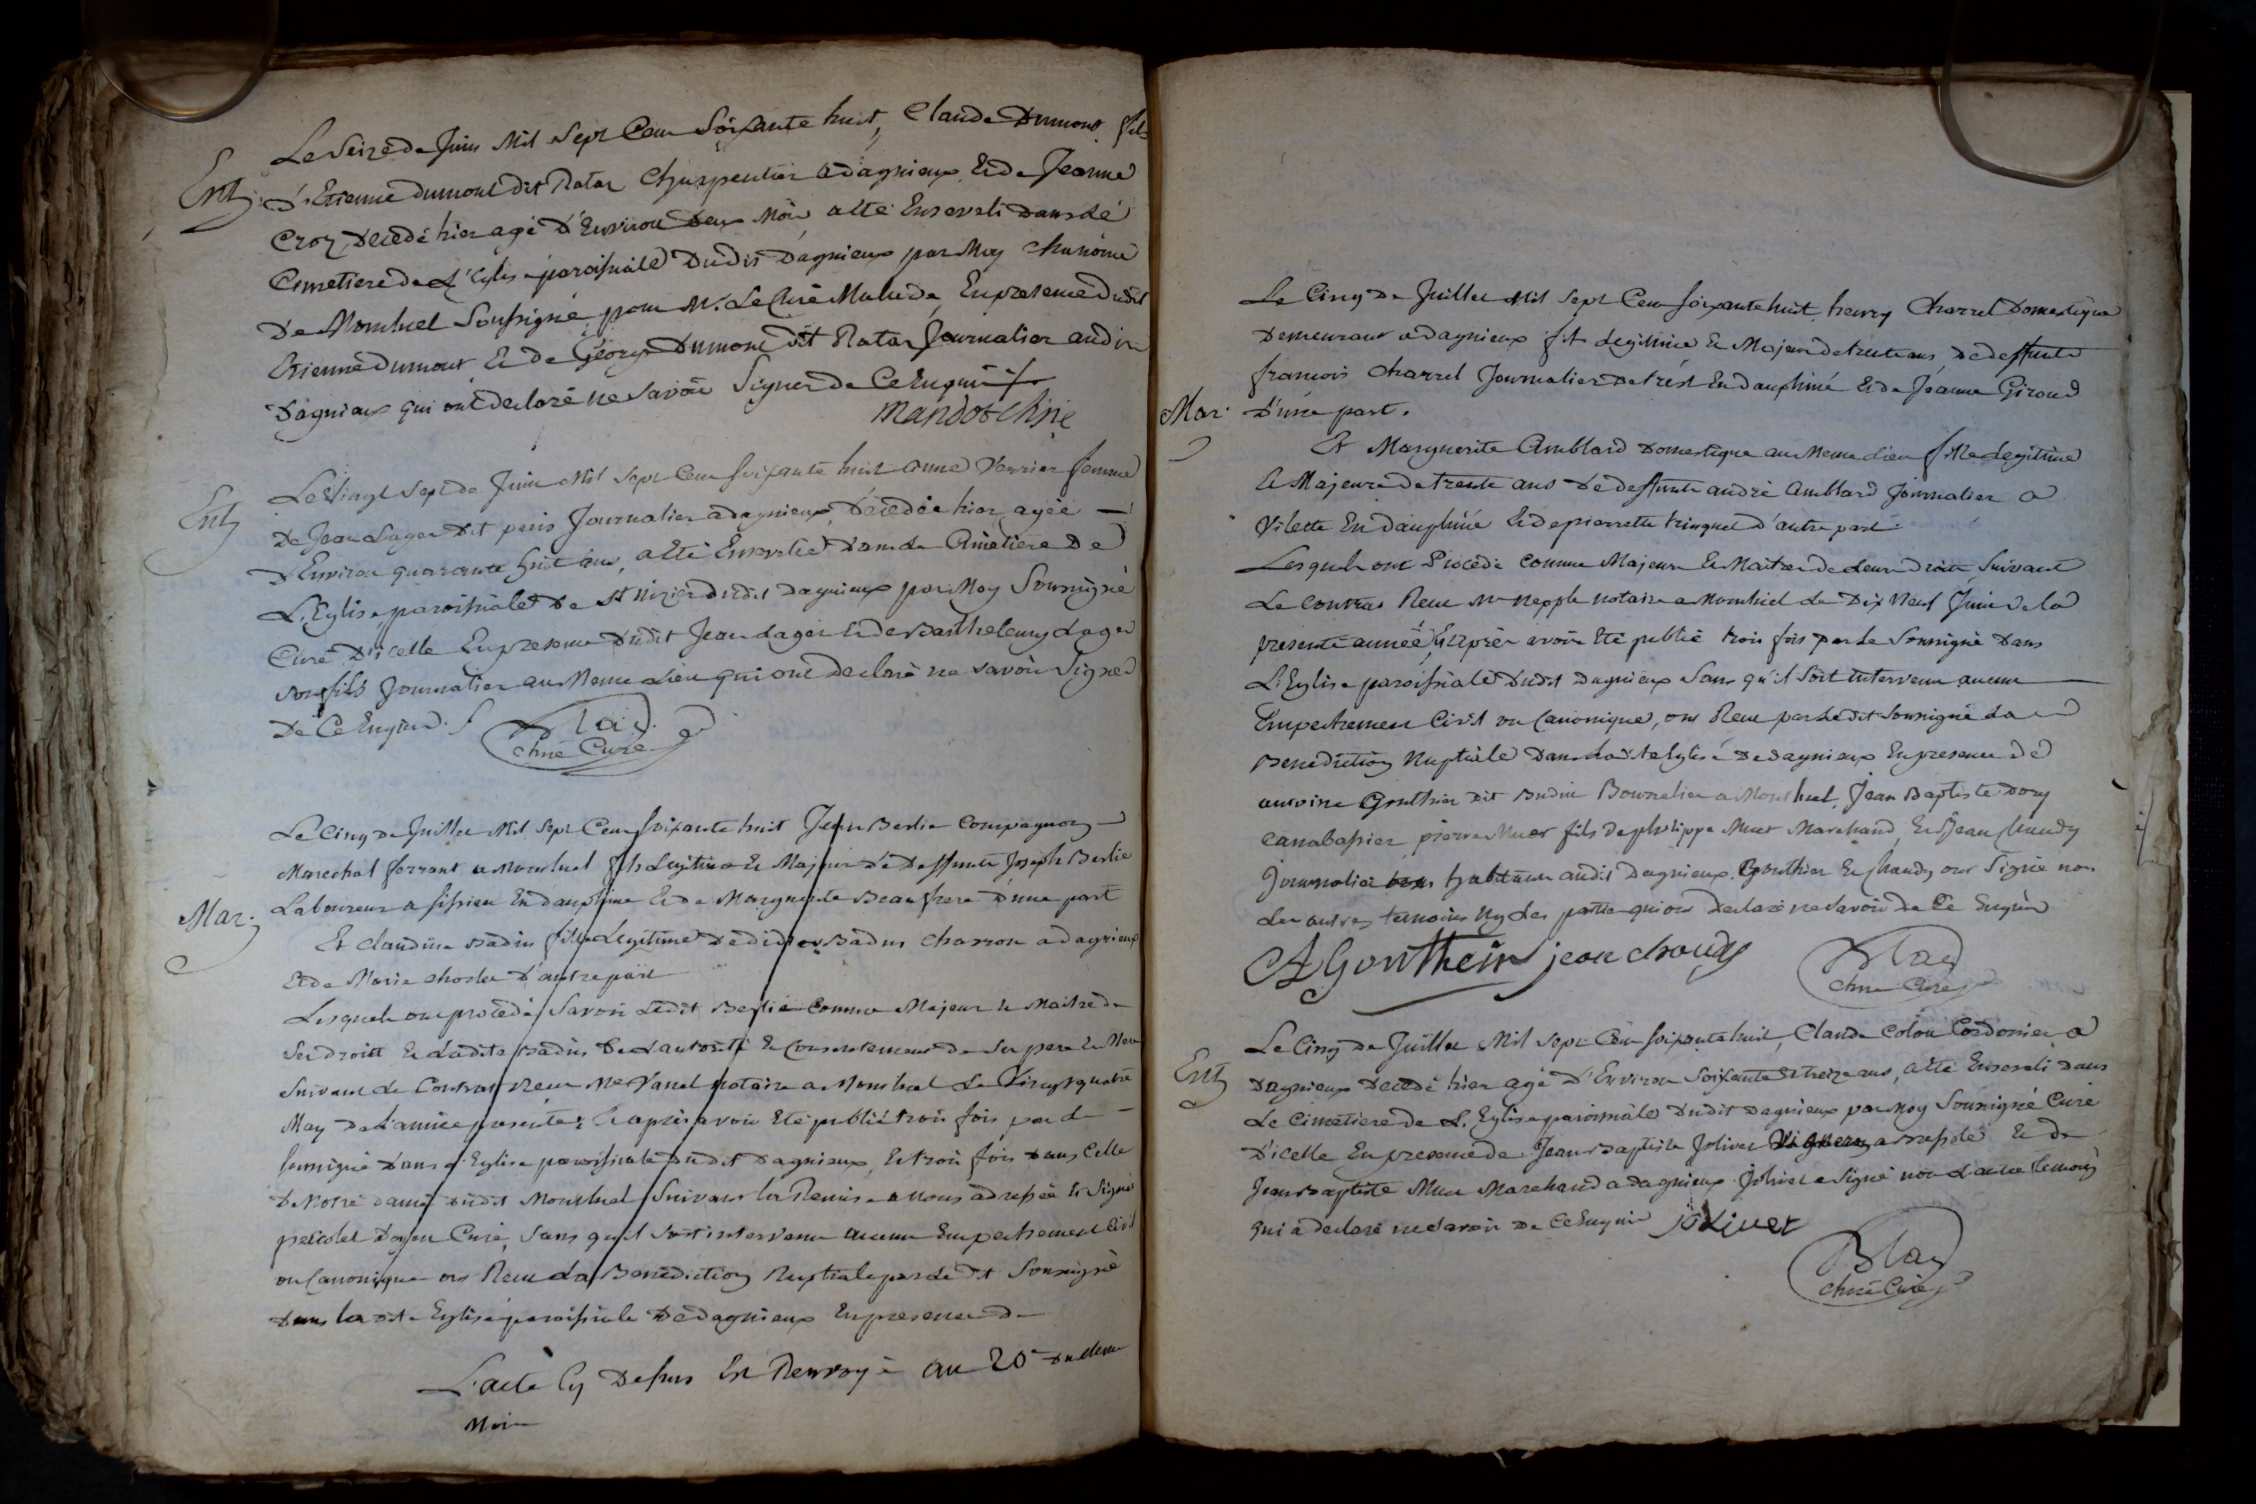 Le Seize de Juin Mil Sept Cent Soixante huit, Claude Dumont fils
Ent.
d'Etienne dumont dit Ratar Charpentier a dagnieux Et de Jeanne
Croz Decedé hier agé d'Environ deux Mois a eté Enseveli dans le
Cimetiere de L'Eglise paroissiale Dudit Dagnieux par Moy Chanoine
De Montluel Soussigné pour Mr. Le Curé Malade, En presence dudit
Etienne dumont Et de George Dumont dit Ratar Journalier audit
Dagnieux qui ont declaré ne savoir Signer de Ce Enquis
Mandot Chne
Ent
Le Vingt Sept de Juin Mil Sept Cent soixante huit anne Verrier femme
De Jean Lager Dit Journalier a dagnieux, Decedée hier, agée
D'Environ quarante huit ans, a eté Ensevelie Dans Le Cimetiere De
L'Eglise paroissiale De St Nizier dudit dagnieux par Moy Soussigné
Curé D'icelle En presence Dudit Jean Lager Et de Barthelemy Lager
son fils Journalier au Meme Lieu qui ont declaré ne savoir Signer
De Ce Enquis.
Blad
chne Curé
Le Cinq de Juillet Mil Sept Cent soixante huit Jean Berlie Compagnon
Marechal ferrant a Montluel fils Legitime Et Majeur De Deffunt Joseph Berlie
Mar.
Laboureur a sissieu En dauphiné Et de Marguerite Beaufrere D'une part
Et Claudine Badin fille Legitime De didier Badin Charron a dagnieux
Et de Marie D'autre part
Lesquels ont procedé Savoir Ledit Berlie Comme Majeur Et Maitre de
Ses droits Et Ladite Badin De L'autorité Et Consentement de Ses pere Et Mere
Suivant Le Contrat Reçu Me Vanel Notaire a Montluel Le Vingt quatre
May De L'année presente; Et apres avoir Eté publié trois fois par Le
soussigné Dans L'Eglise paroissiale dudit Dagnieux, Et trois fois Dans Celle
De Notre dame dudit Montluel Suivant La Remise a Nous adressée Et Signé
Doyen Curé, Sans qu'il Soit intervenu aucun Empechement Civil
ou Canonique ont Reçu La Benediction Nuptiale par Ledit Soussigné
Dans Ladite Eglise paroissiale De dagnieux En presence de
L'acte Cy Dessus Est Renvoyé au 20e du meme
Mois
Le Cinq De Juillet Mil Sept Cent soixante huit henry Charrel Domestique
Demeurant a dagnieux fils Legitime Et Majeur de trente ans De deffunt
francois Charrel Journalier En dauphiné Et de Jeanne Giroud
Mar.
D'une part.
Et Marguerite Amblard Domestique au Meme Lieu fille Legitime
Et Majeure de trente ans De deffunt andré Amblard Journalier a
Vilette En dauphiné Et de pierrette trinquet d'autre part
Lesquels ont Procedé Comme Majeurs Et Maitres de Leurs Droits Suivant
Le Contrat Reçu Me Nepple Notaire a Montluel Le Dix Neuf Juin De la
presente année, Et apres avoir Eté publié trois fois par Le Soussigné Dans
L'Eglise paroissiale Dudit Dagnieux Sans qu'il Soit intervenu aucun
Empechement Civil ou Canonique, ont Reçu par Ledit Soussigné La
Benediction Nuptiale Dans Ladite Eglise De dagnieux En presence De
antoine Gouthier Dit Bourrelier a Montluel, Jean Baptiste Dory
Canabassier, pierre Muet fils De philippe Muet Marchand, Et Jean Chaudy
Journalier habitans audit Dagnieux. Gouthier Et Chaudy ont Signé non
Les autres temoins Ny Les parties qui ont Declaré ne Savoir De Ce Enquis
A Gouthier jean chaudy
Blad
chne Curé
Le Cinq De Juillet Mil Sept Cent soixante huit, Claude Colon Cordonnier a
Ent
Dagnieux Decedé hier agé D'Environ Soixante Et treize ans, a eté Enseveli Dans
Le Cimetiere De L'Eglise paroissiale Dudit Dagnieux par Moy Soussigné Curé
D'icelle En presence de Jean Baptiste Jolivet Vigneron a Bressole Et De
Jean Baptiste Muet Marchand a Dagnieux. Jolivet a Signé non L'autre temoin
qui a Declaré ne Savoir De Ce Enquis Jolivet
Blad
chne Curé